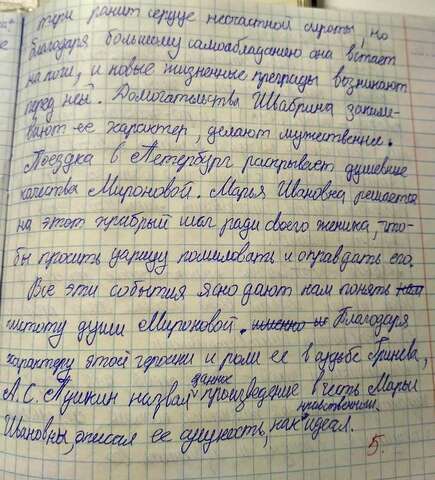 тери ранит сердце несчастной сироты, но
благодаря большому самообладанию она встает
на ноги, и новые жизненные преграды возникают
перед ней. Домогательства Швабрина закаля-
вают ее характер, делают мужественные.
Поездка в Петербург раскрывает душевные
качества Мироновой. Марья Ивановна решается
на этот храбрый шаг ради своего жениха, что-
бы просить царицу помиловать и оправдать его.
Все эти события ясно дают нам понять
чистоту души Мироновой. именно и Благодаря
характеру этой героини и роли ее в судьбе Гринева,
А.С. Пушкин назвал данное произведение в честь Марьи
Ивановны, описал ее сущность, как нравственный идеал.
5.